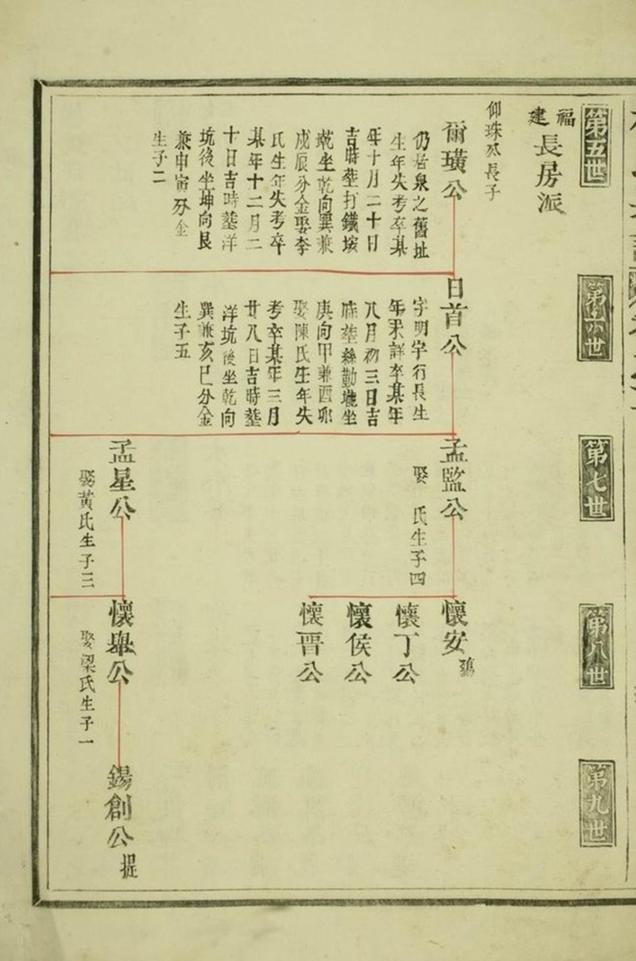 第五世
第六世
第七世
第八世
第九世
福建
長房派
仰珠公長子
爾璜公
仍居泉之舊址
生年失考卒某
年十月二十日
吉時塟打鐵垵
坐乾向巽兼
戌辰分金娶李
氏生年失考卒
某年十二月二
十日吉時塟洋
坑後坐坤向艮
兼申寅分金
生子二
日首公
字明宇行長生
年未詳卒某年
八月初三日吉
時塟絲勤壠坐
庚向甲兼酉卯
娶陳氏生年失
考卒某年三月
廿八日吉時塟
洋坑後坐乾向
巽兼亥巳分金
生子五
孟監公
娶 氏生子四
孟星公
娶黃氏生子三
懷安
懷丁公
懷侯公
懷晋公
懷舉公
娶梁氏生子一
錫創公
提